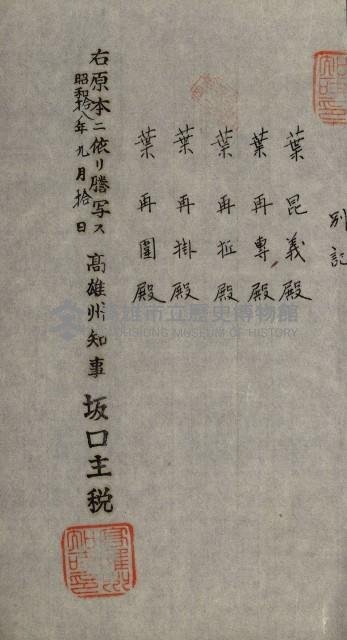 別記
葉昆義殿
葉再專殿
葉再拒殿
葉再掛殿
葉再圍殿
右原本ニ依リ謄写ス
昭和拾八年九月拾日
高雄州知事 坂口主税
高雄市立歷史博物館
KAOHSIUNG MUSEUM OF HISTORY